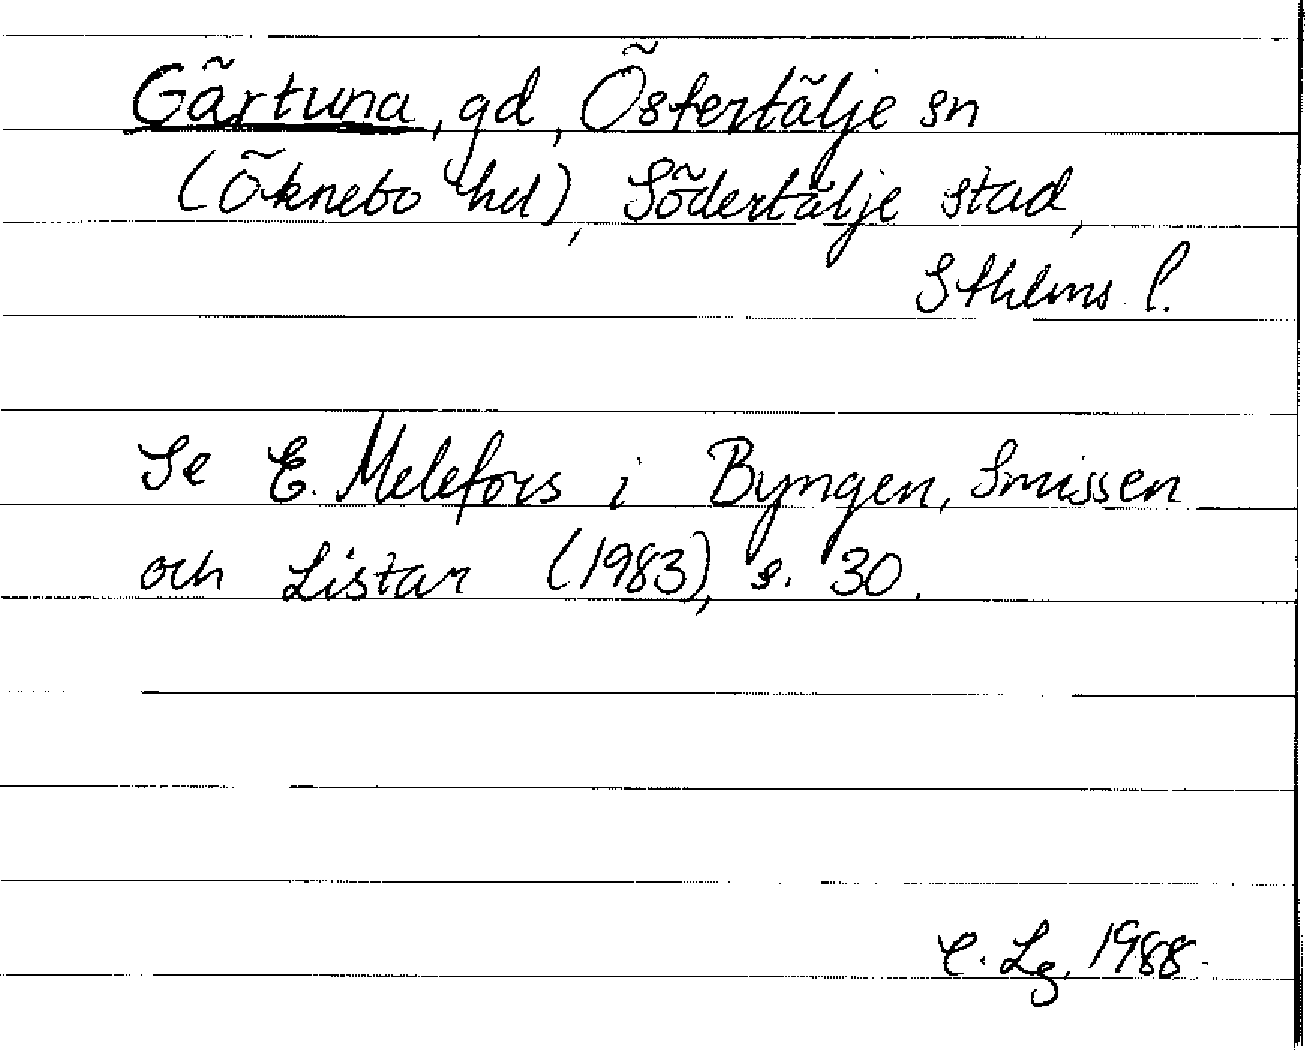 Gärtuna, gd, Östertälje sn
(Öknebo hd), Södertälje stad,
Sthlms l.
Se E. Melefors i Byngen, Smissen
och Listar (1983), s. 30.
C. Lg. 1988.